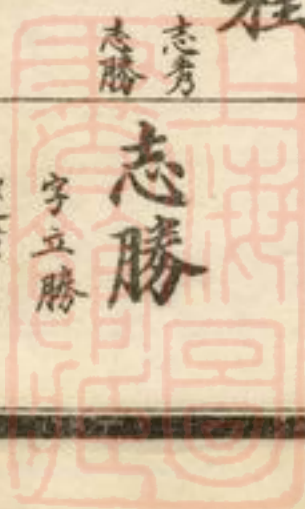 志秀
志勝
志勝
字立勝